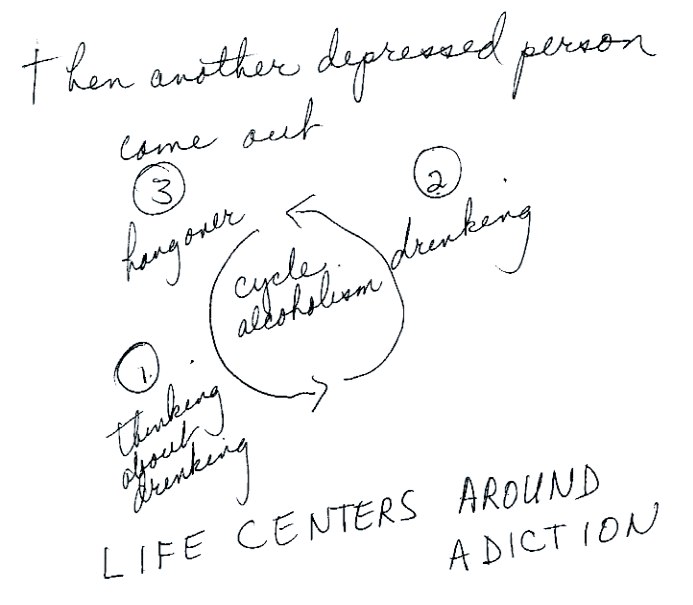 then another depressed person
came out
3
hangover
2
drinking
cycle
alcoholism
1.
thinking
about
drinking
LIFE CENTERS AROUND
ADICTION